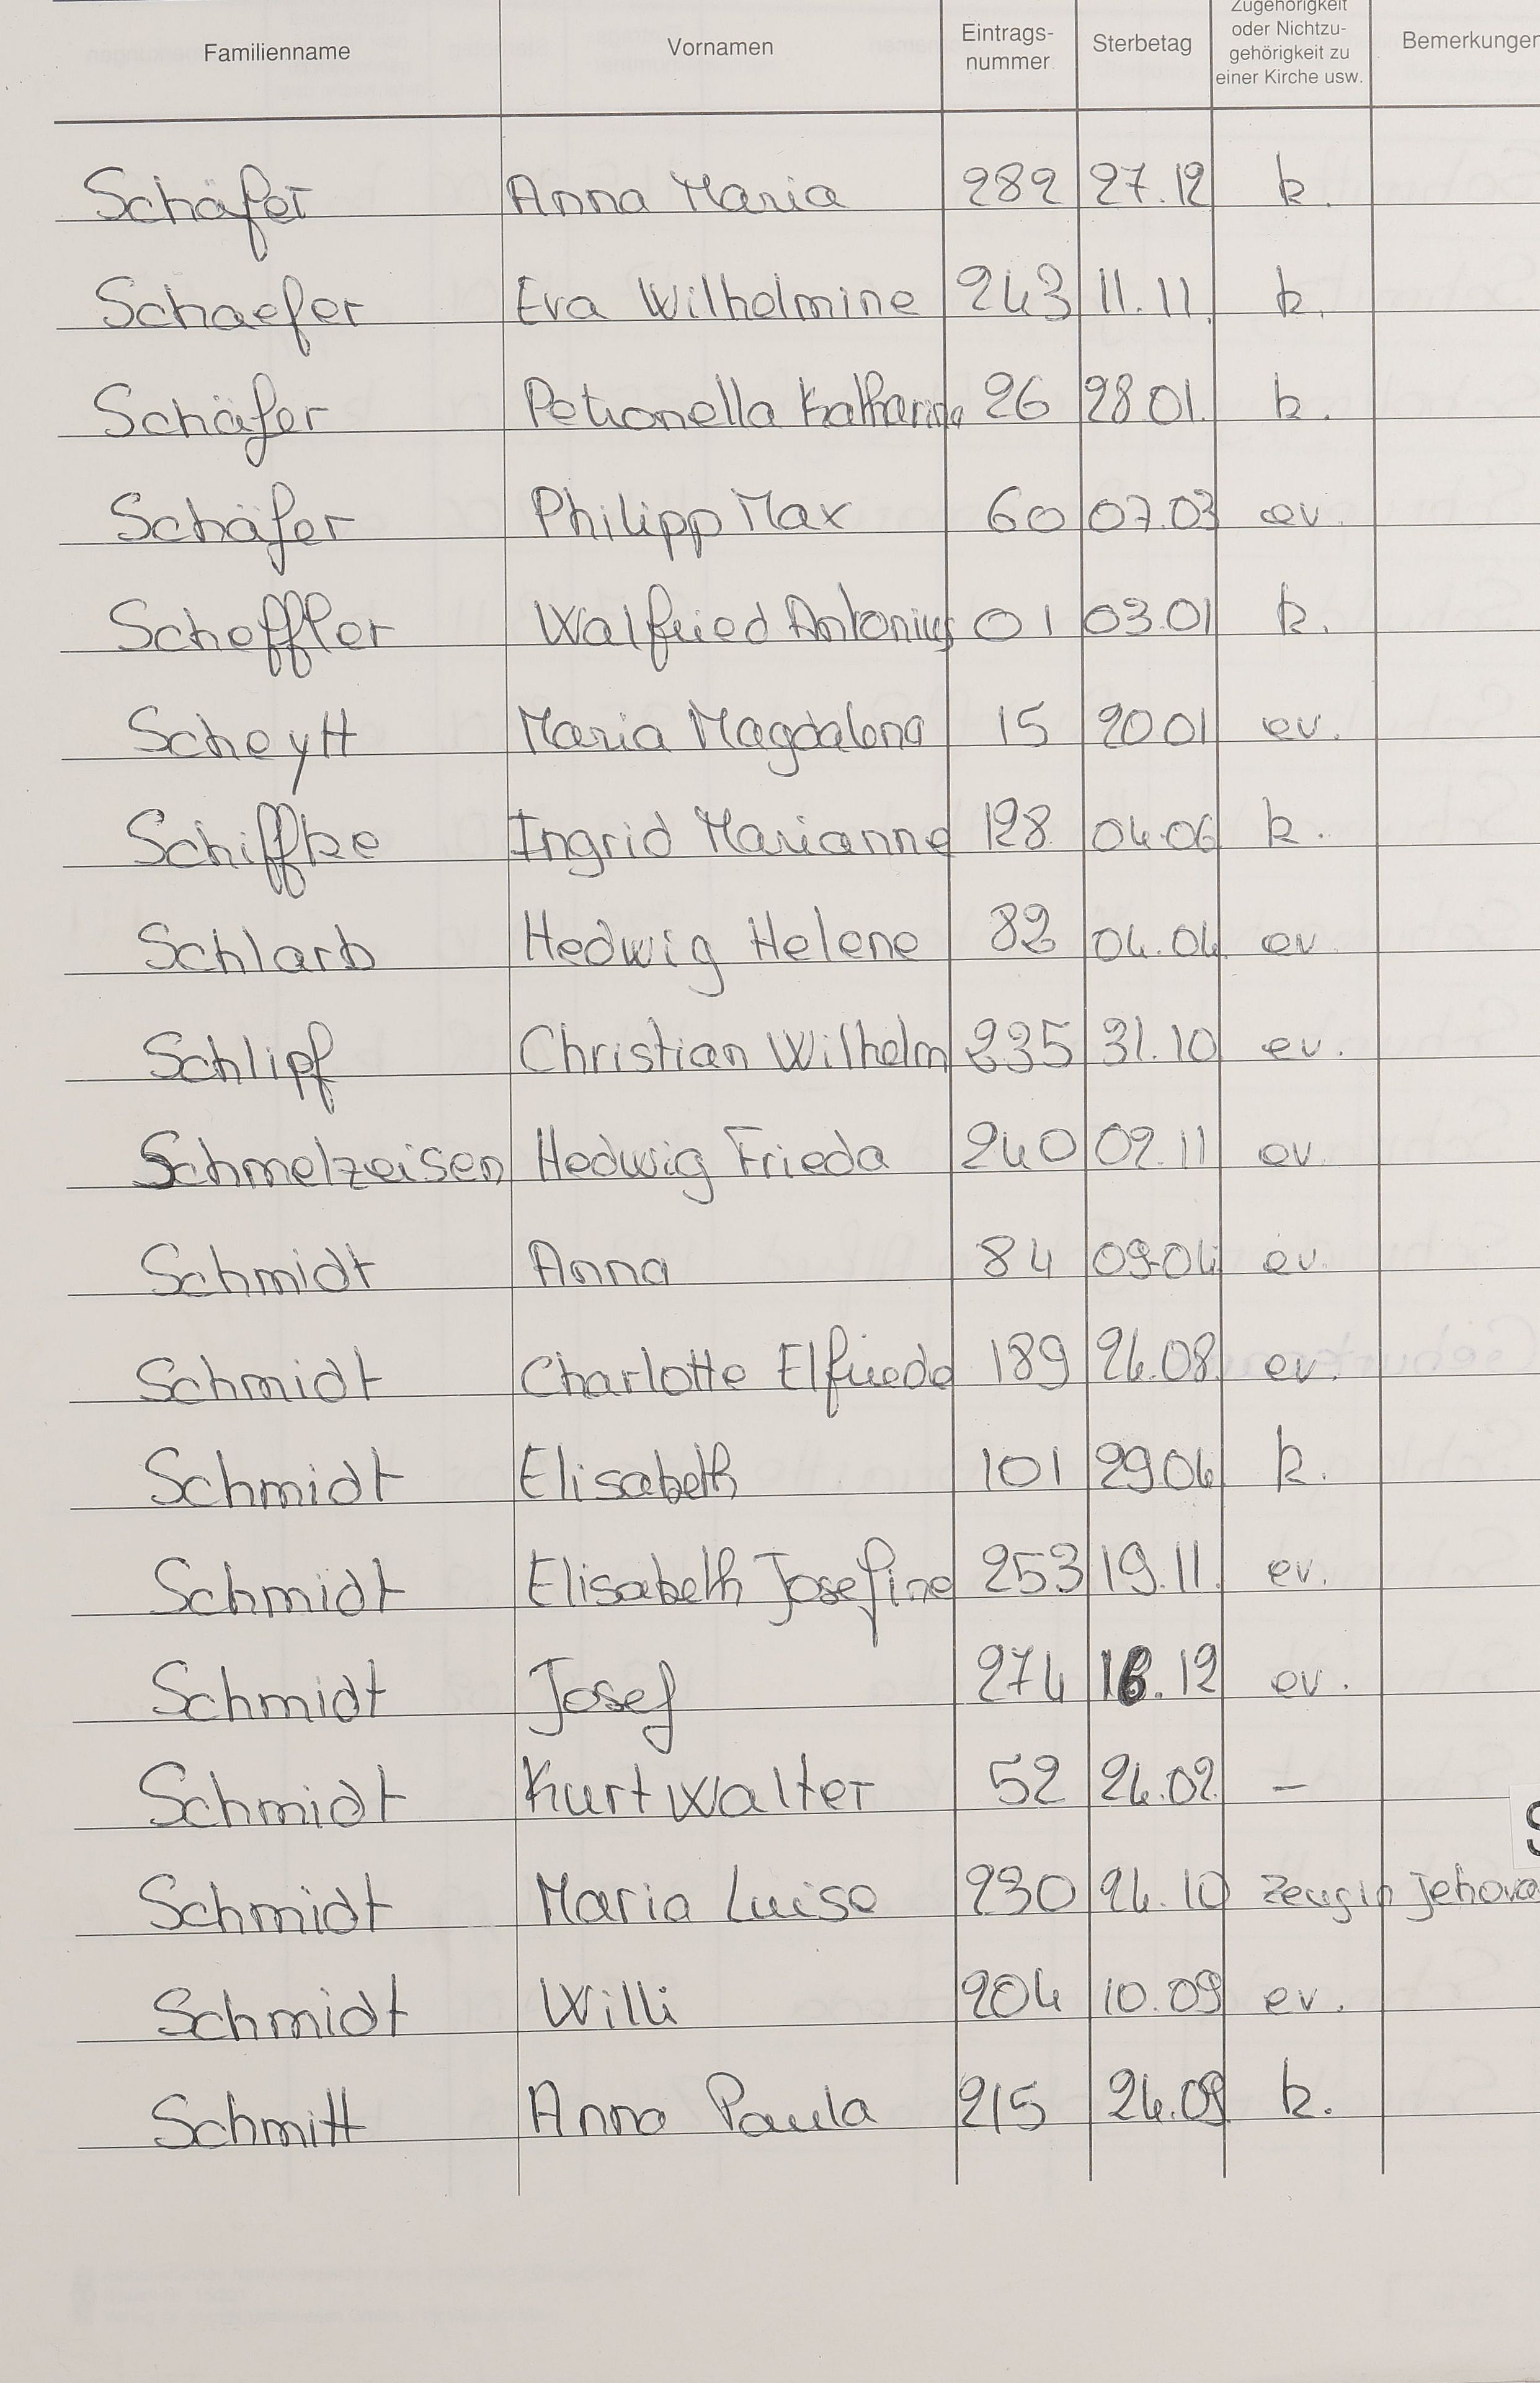 Familienname Vornamen Eintrags-nummer Sterbetag Zugehörigkeit oder Nichtzu-gehörigkeit zu einer Kirche usw. Bemerkungen
Schäfer Anna Maria 282 27.12 k.
Schaefer Eva Wilhelmine 243 11.11. k.
Schäfer Petronella Katharina 26 28 01. k.
Schäfer Philipp Max 60 07.03 ev.
Scheffler Walfried Antonius 01 03.01 k.
Scheytt Maria Magdalena 15 20 01 ev.
Schiffke Ingrid Marianne 128 04.06 k.
Schlarb Hedwig Helene 82 04.04. ev.
Schlipf Christian Wilhelm 235 31.10 ev.
Schmelzeisen Hedwig Frieda 240 02.11 ev.
Schmidt Anna 84 09.04 ev.
Schmidt Charlotte Elfriede 189 24.08. ev.
Schmidt Elisabeth 101 29 04 k.
Schmidt Elisabeth Josefine 253 19.11. ev.
Schmidt Josef 274 16.12 ev.
Schmidt Kurt Walter 52 24.02. –
Schmidt Maria Luise 230 24.10 Zeugin Jehova
Schmidt Willi 204 10.09 ev.
Schmitt Anna Paula 215 24.09 k.